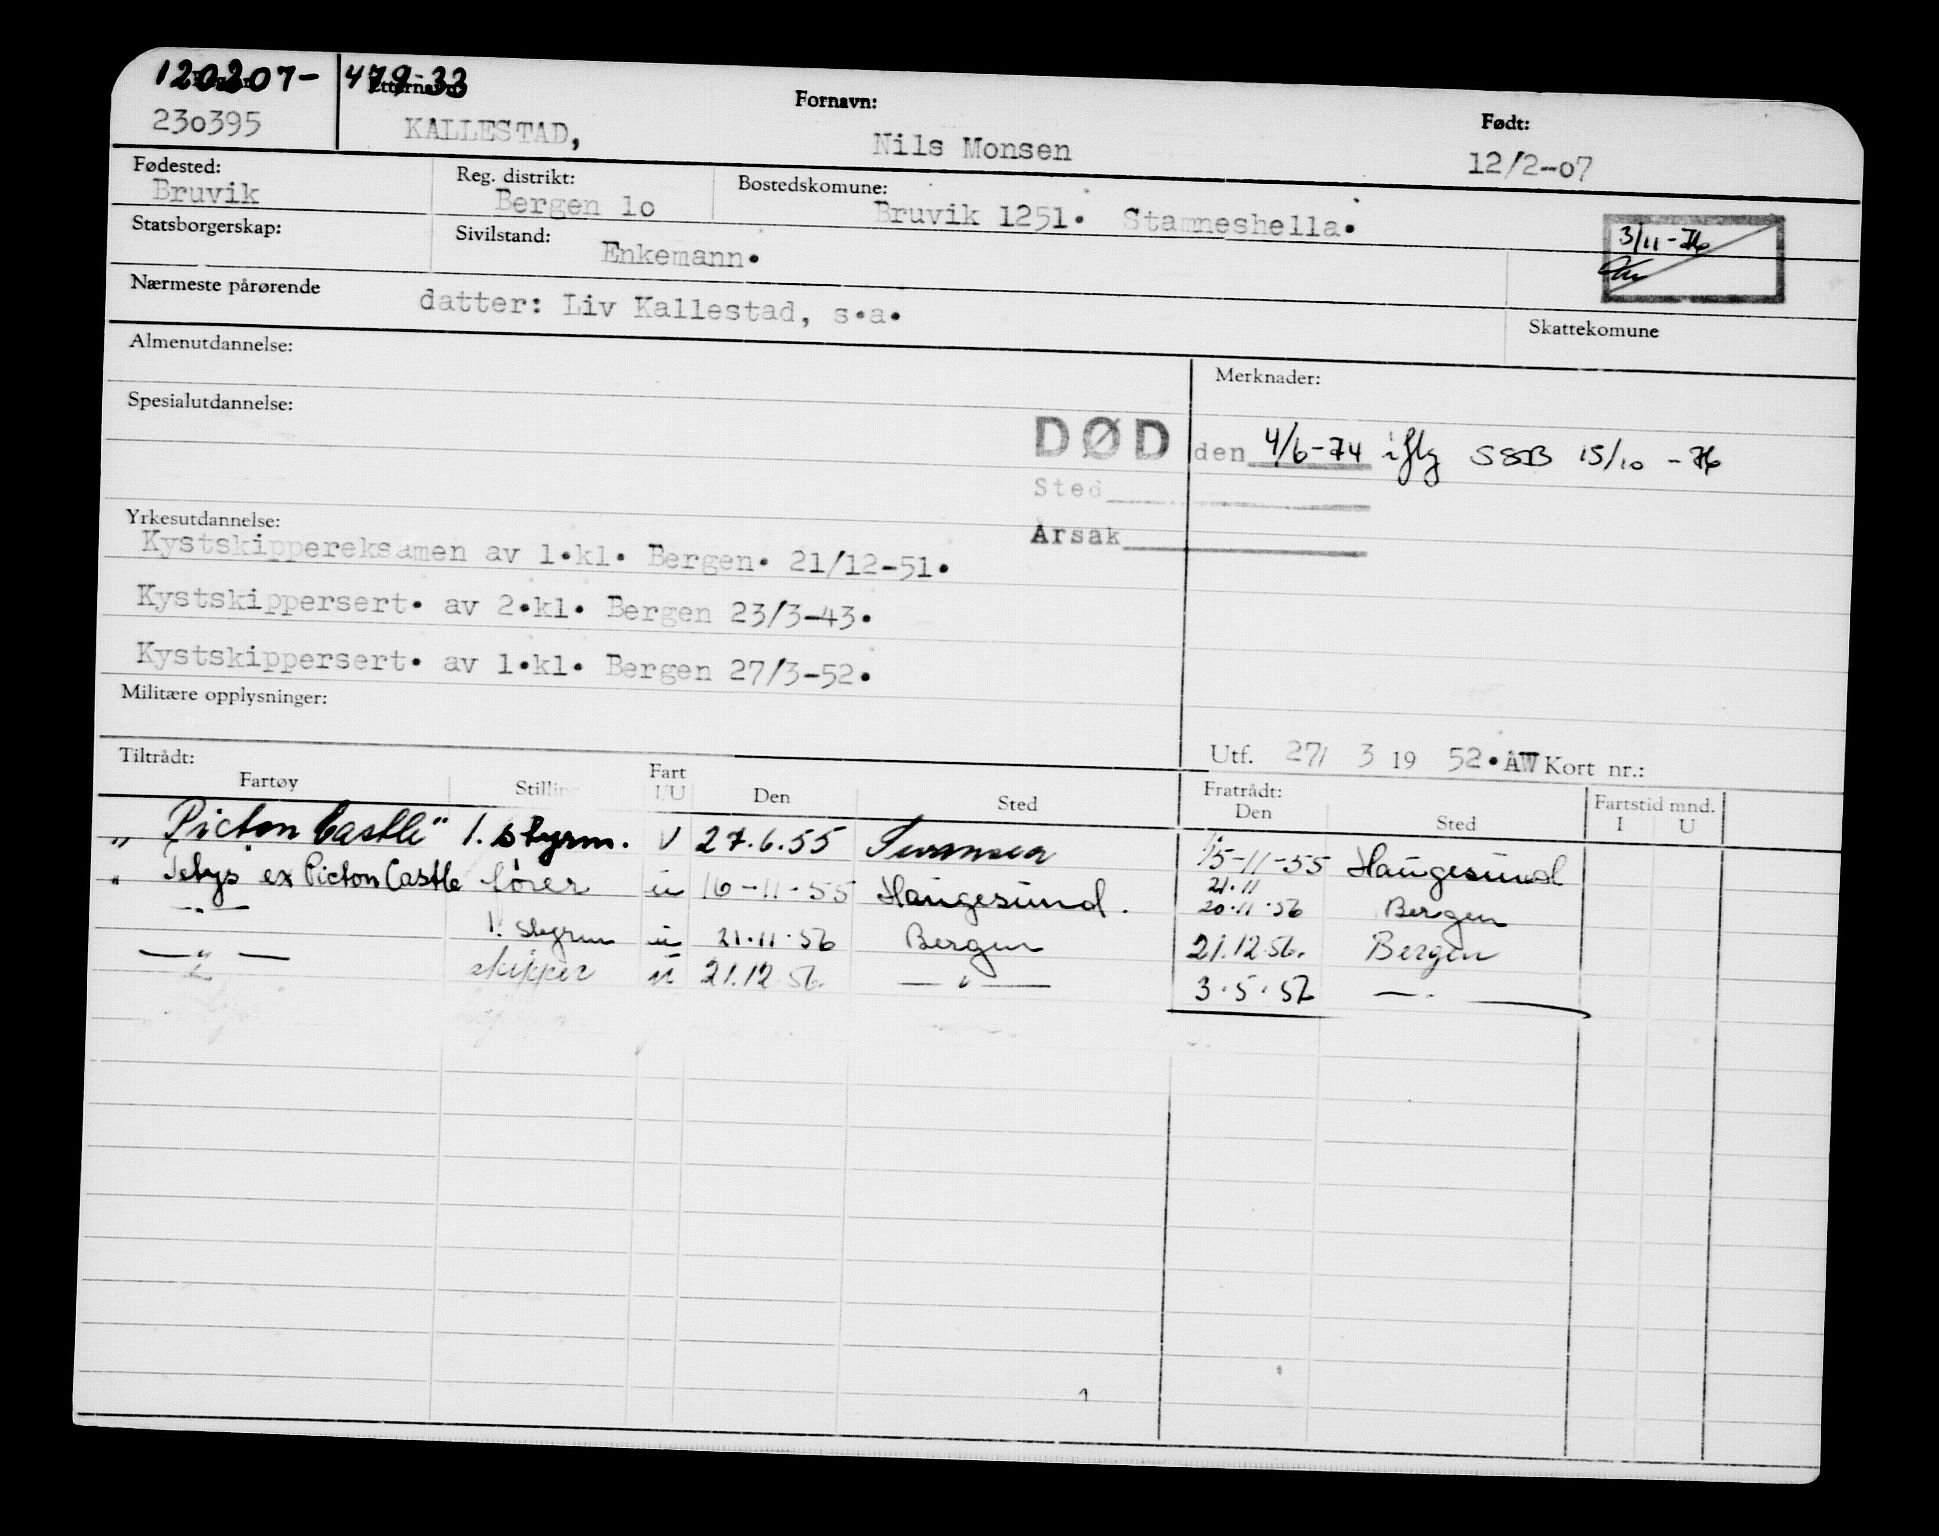 120207- 479-33
Fornavn: Født:
230395 KALLESTAD, Nils Monsen 12/2-07
Fødested: Reg. distrikt: Bostedskomune:
Bruvik Bergen 1o Bruvik 1251. Stamneshella.
Statsborgerskap: Sivilstand:
Enkemann.
3/11-76
Nærmeste pårørende
datter: Liv Kallestad, s.a.
Skattekomune
Almenutdannelse:
Merknader:
Spesialutdannelse:
DØD den 4/6-74 iflg SSB 15/10 -76
Sted
Årsak
Yrkesutdannelse:
Kystskippereksamen av 1.kl. Bergen. 21/12-51.
Kystskippersert. av 2.kl. Bergen 23/3-43.
Kystskippersert. av 1.kl. Bergen 27/3-52.
Militære opplysninger:
Utf. 27/ 3 19 52. AW Kort nr.:
Tiltrådt: Fratrådt: Fartstid mnd.
Fartøy Stilling Fart I/U Den Sted Den Sted I U
"Picton Castle" 1. styrm. U 27.6.55 Swansea 15-11-55 Haugesund
" Tetys ex Picton Castle fører u 16-11-55 Haugesund. 21.11
20.11.56 Bergen
—"— 1. styrm u 21.11.56 Bergen 21.12.56. Bergen
—"— skipper u 21.12.56. —"— 3.5.57 —"—